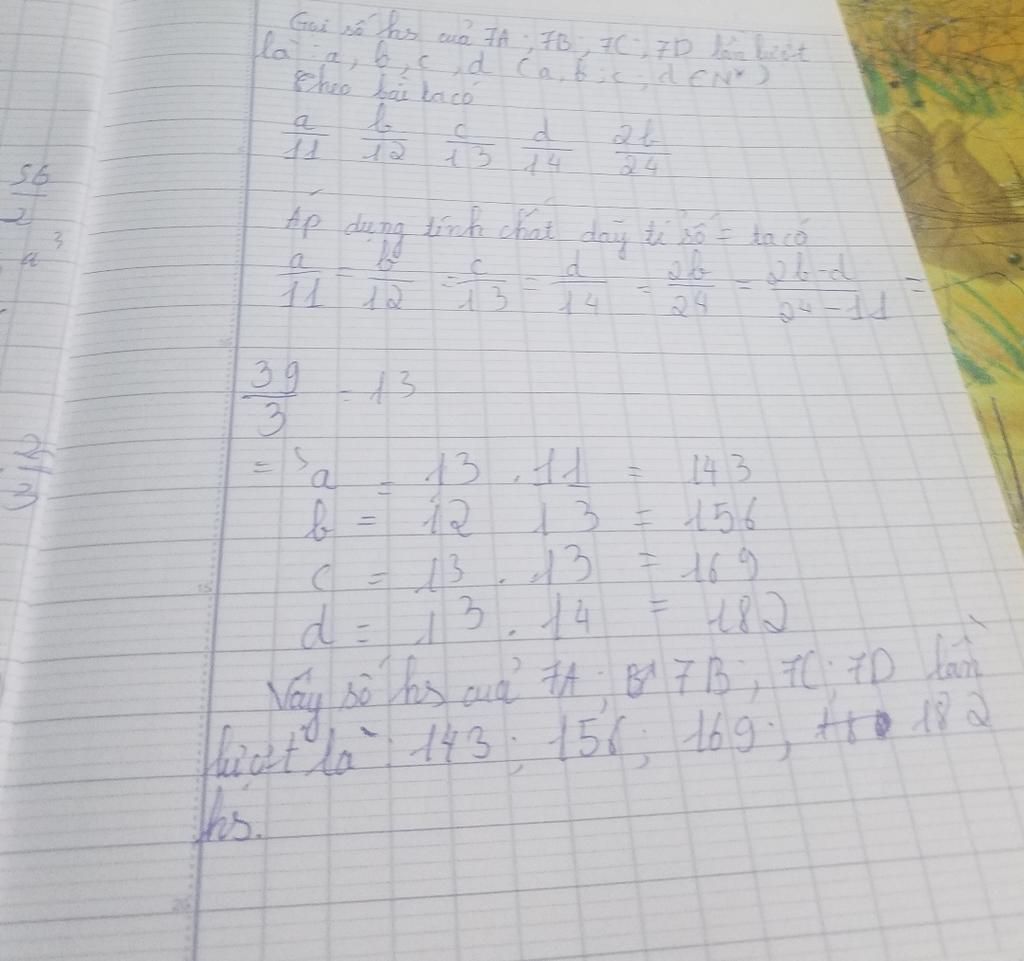 Gọi số hs của 7A ; 7B ; 7C ; 7D lần lượt
là : a, b, c, d ( a, b, c, d ∈ N* )
theo bài ta có
a/11 b/12 c/13 d/14 2b/24
Áp dụng tính chất dãy tỉ số = ta có
a/11 = b/12 = c/13 = d/14 = 2b/24 = 2b-d/24-11 =
39/3 = 13
=> a = 13 . 11 = 143
b = 12 13 = 156
c = 13 . 13 = 169
d = 13 . 14 = 182
Vậy số hs của 7A ; 7B ; 7C ; 7D lần
lượt là : 143 ; 156 ; 169 ; 182
hs.
56/2
a³
2/3